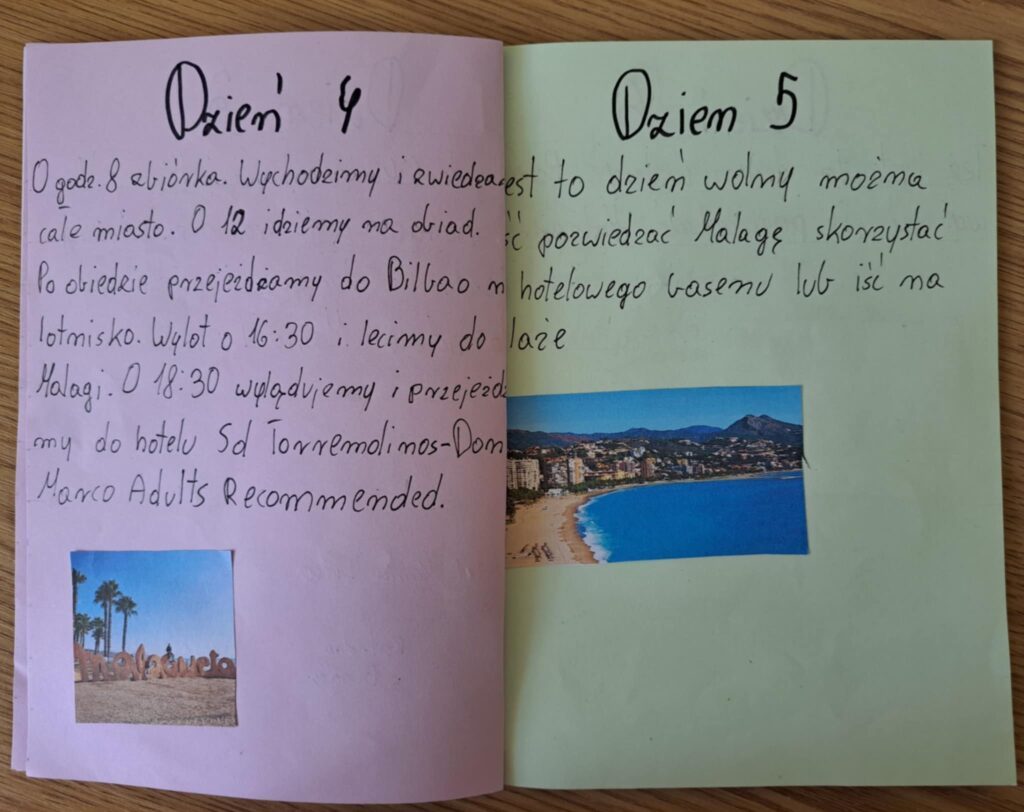 Dzień 4
O godz. 8 zbiórka. Wychodzimy i zwiedza
całe miasto. O 12 idziemy na obiad.
Po obiedzie przejeżdzamy do Bilbao n
lotnisko. Wylot o 16:30 i lecimy do
Malagi. O 18:30 wylądujemy i przejeżdz
my do hotelu Sd Torremolinos-Don
Marco Adults Recommended.
malagueta
Dzien 5
est to dzień wolny można
ść pozwiedzać Malagę skorzystać
hotelowego basenu lub iść na
laże